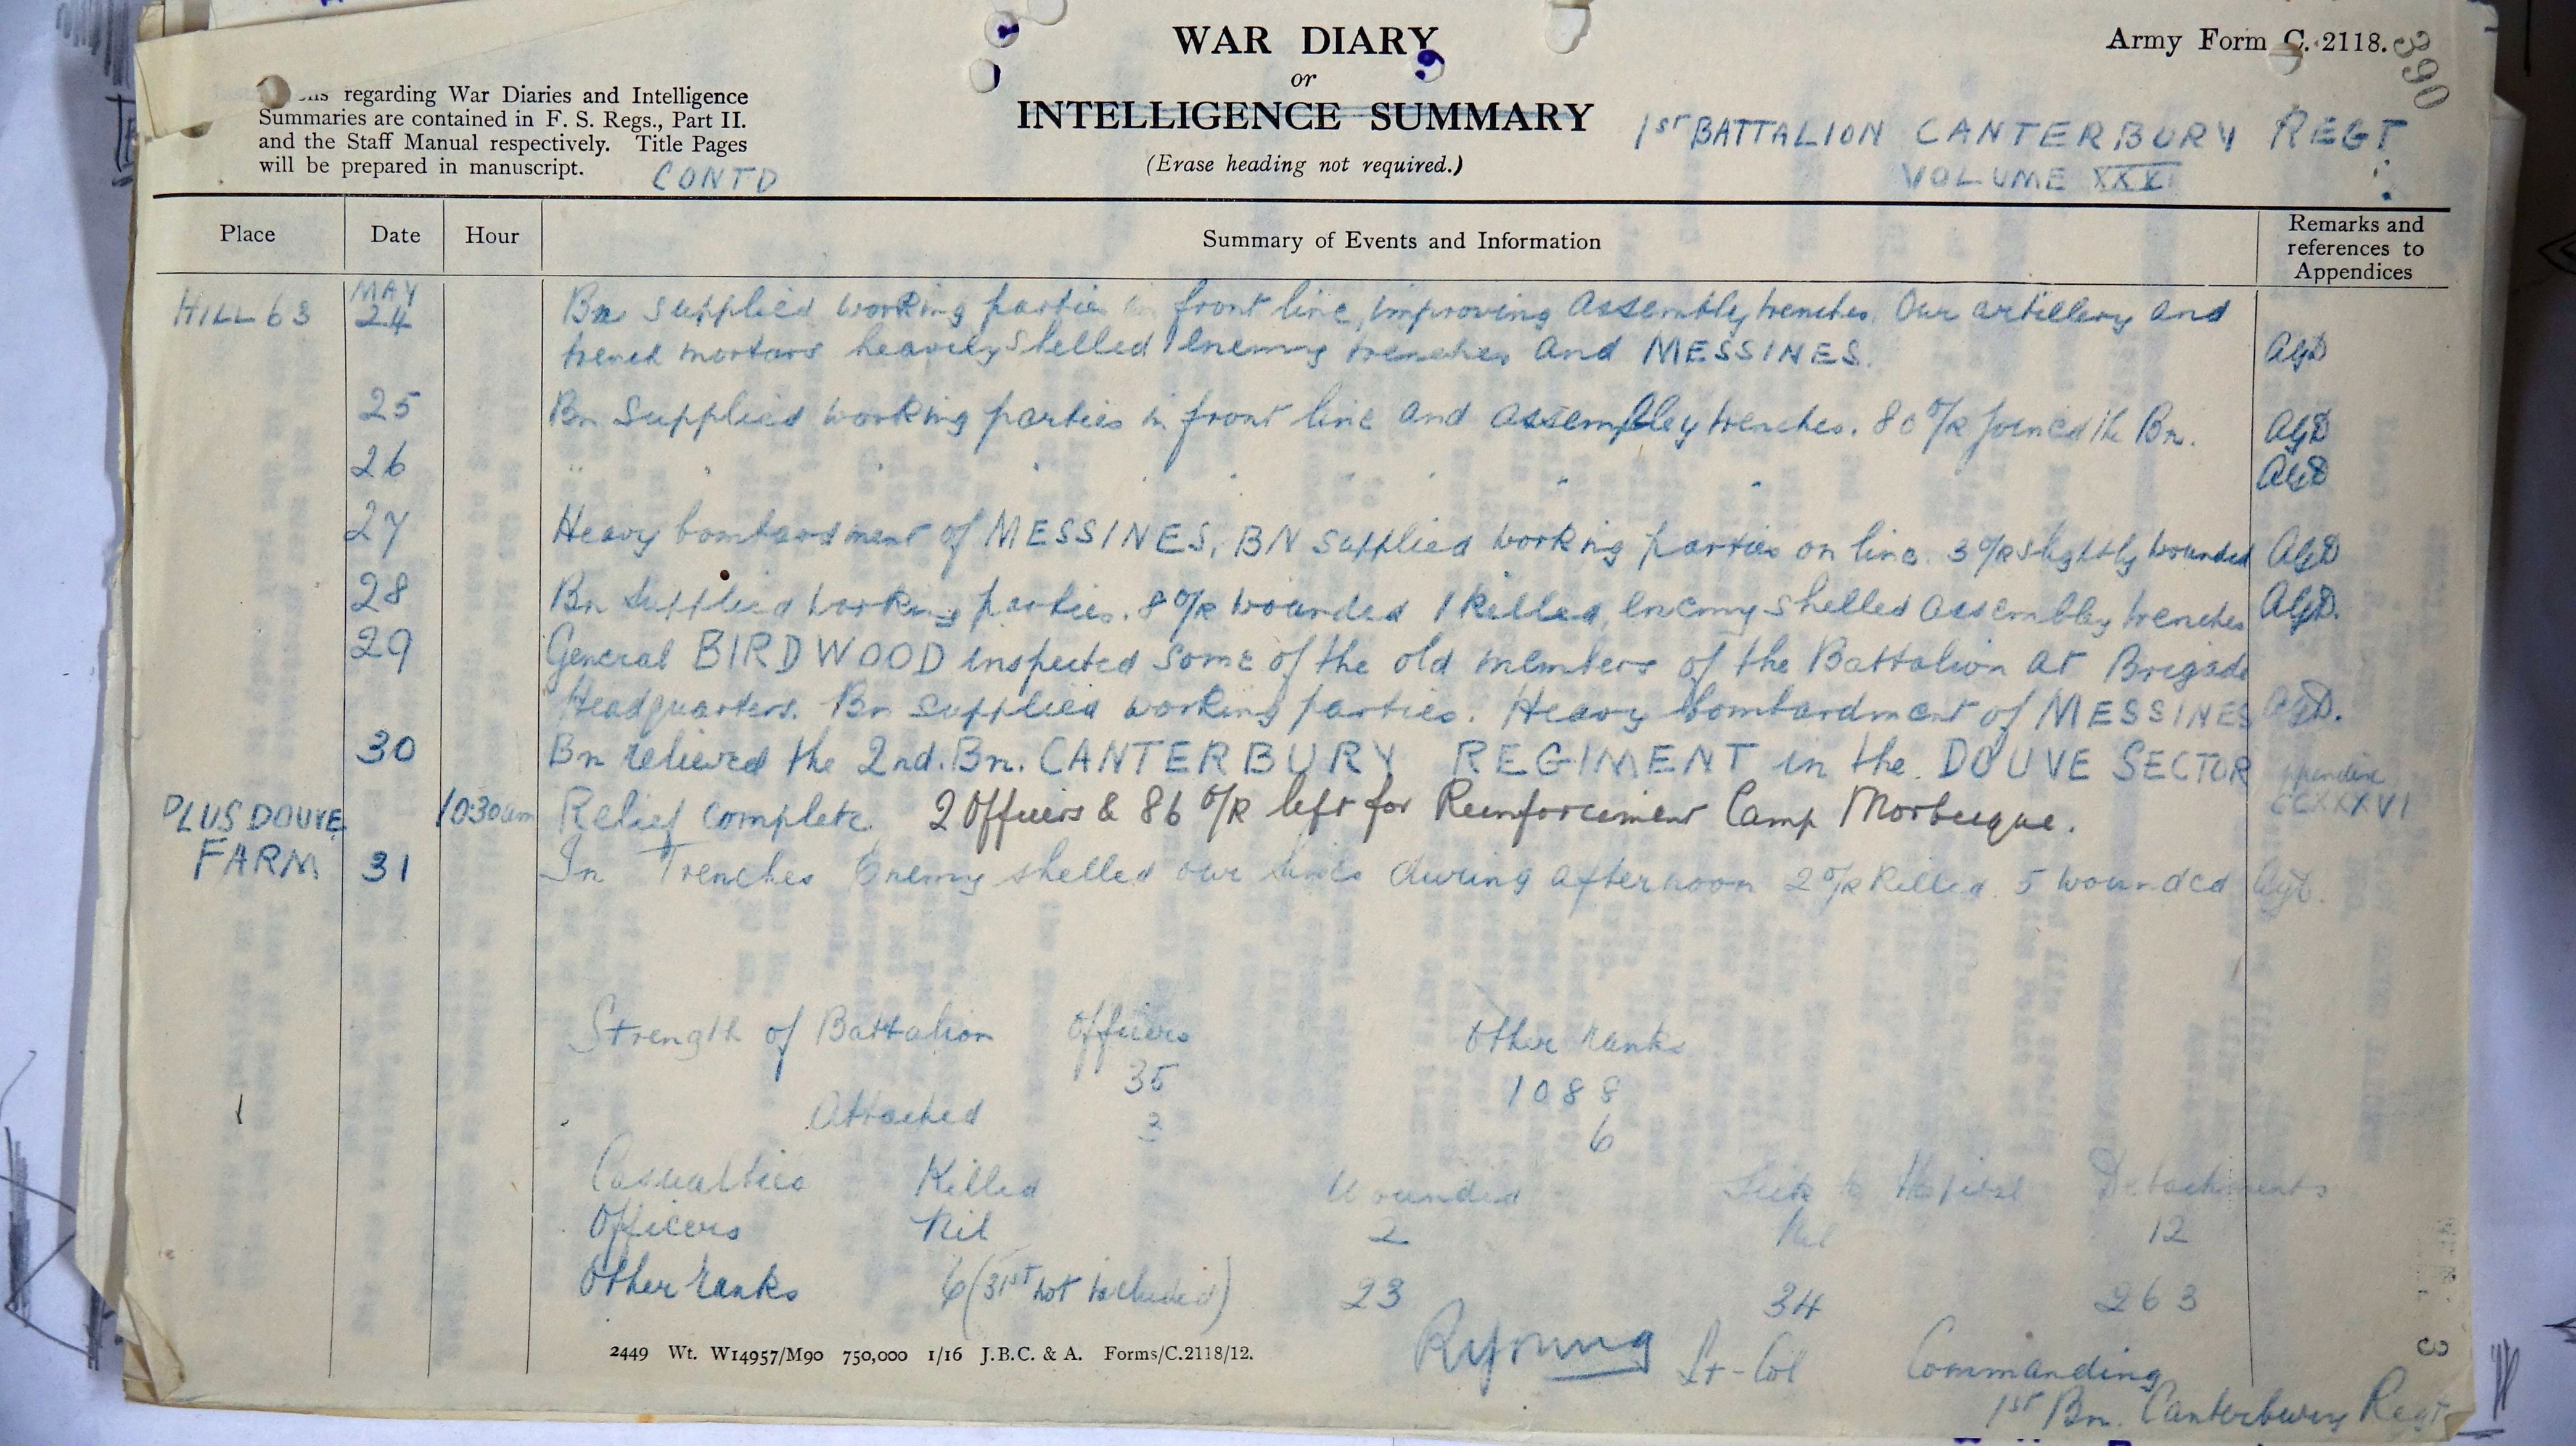 WAR DIARY
or
INTELLIGENCE SUMMARY
(Erase heading not required.)
Army Form C. 2118.
390
regarding War Diaries and Intelligence
Summaries are contained in F. S. Regs., Part II.
and the Staff Manual respectively. Title Pages
will be prepared in manuscript.
CONTD
1ST BATTALION CANTERBURY REGT
VOLUME XXXI
Place Date Hour Summary of Events and Information Remarks and references to Appendices
HILL 63 MAY 24 Bn supplied working parties in front line, improving assembly trenches. Our artillery and
trench mortars heavily shelled enemy trenches and MESSINES. AGD
25 Bn supplied working parties in front line and assembley trenches. 80 O/R joined the Bn. AGD
26 " " " " " " " " " AGD
27 Heavy bombardment of MESSINES, BN supplied working parties on line. 3 O/R slightly wounded AGD
28 Bn supplied working parties. 8 O/R wounded 1 killed, enemy shelled assembley trenches AGD.
29 General BIRDWOOD inspected some of the old members of the Battalion at Brigade
Headquarters. Bn supplied working parties. Heavy bombardment of MESSINES AGD.
30 Bn relieved the 2nd. Bn. CANTERBURY REGIMENT in the DOUVE SECTOR ppendix
PLUS DOUVE 10.30am Relief complete. 2 Officers & 86 O/R left for Reinforcement Camp Morbecque. CCXXXVI
FARM 31 In Trenches Enemy shelled our lines during afternoon 2 O/R killed. 5 wounded AGD.
Strength of Battalion Officers Other ranks
35 1088
Attached 3 6
Casualties Killed Wounded Sick to Hospital Detachments
Officers Nil 2 Nil 12
Other ranks 6 (31st not included) 23 34 263
2449 Wt. W14957/M90 750,000 1/16 J.B.C. & A. Forms/C.2118/12.
RYoung Lt-Col Commanding
1st Bn. Canterbury Regt
3